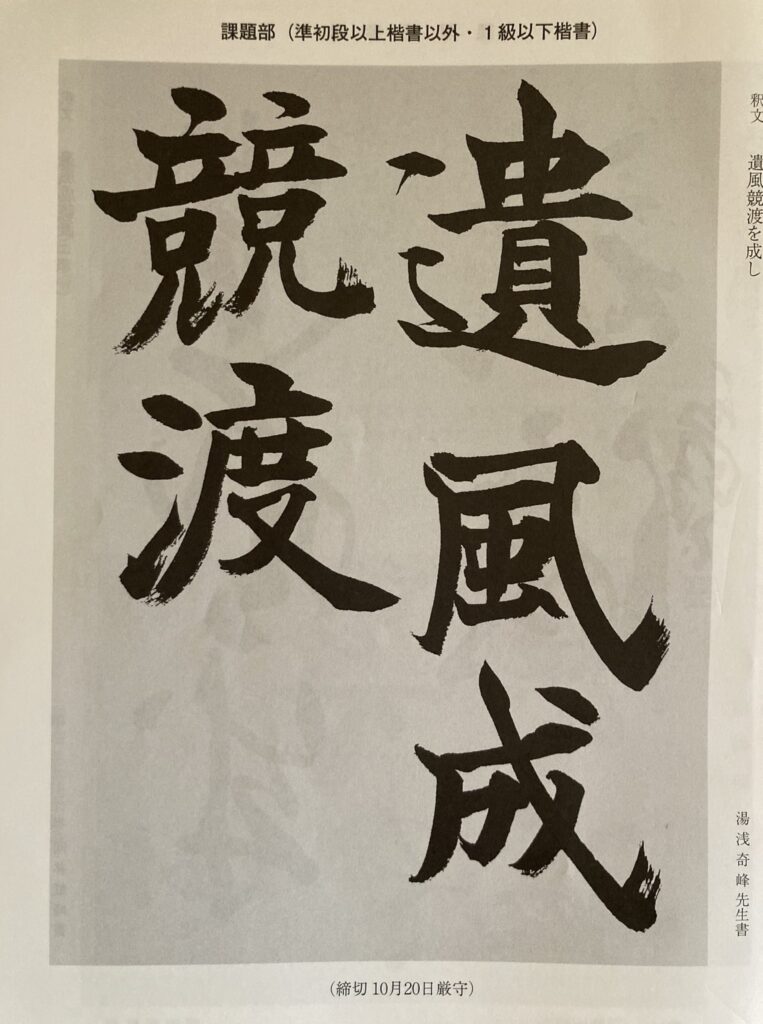 課題部（準初段以上楷書以外・１級以下楷書）
釈文　遺風競渡を成し
遺風成
競渡
湯浅奇峰先生書
（締切10月20日厳守）